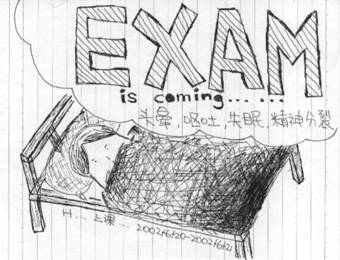 EXAM
is coming... ...
头晕,呕吐,失眠,精神分裂
H... 上课... 2002/6/20-2002/6/21